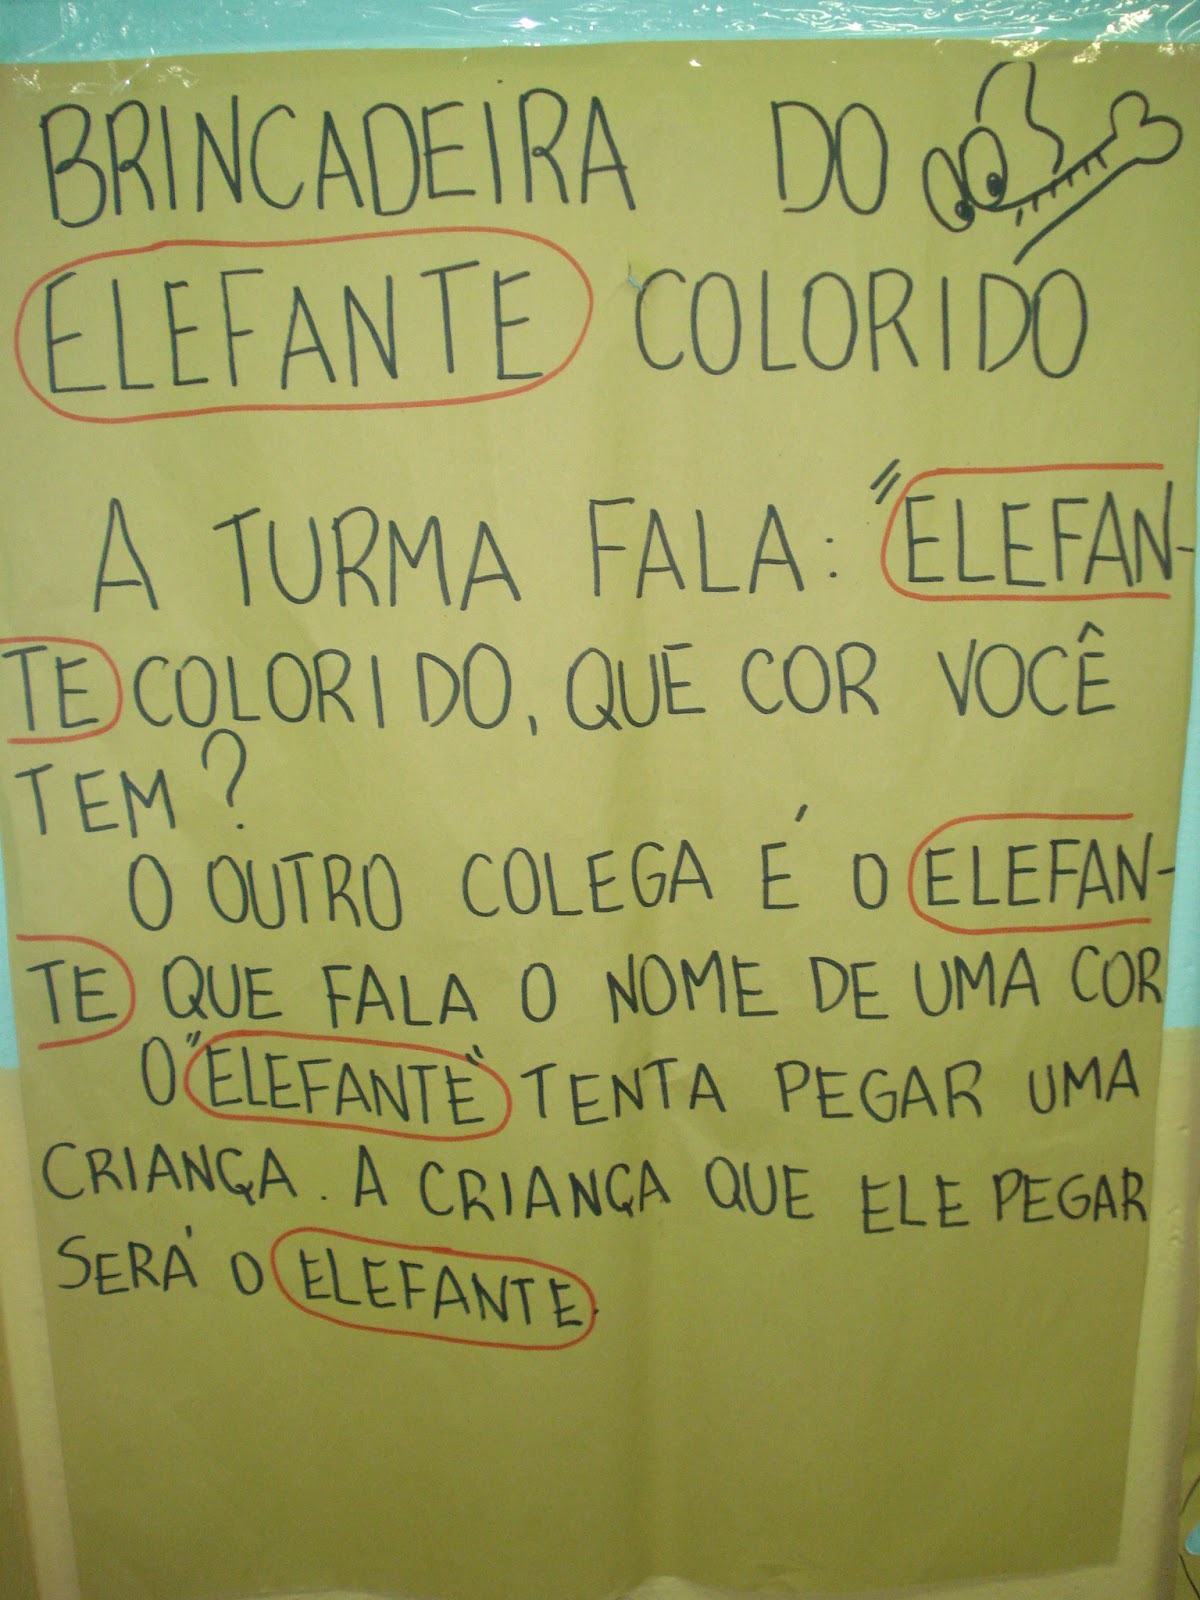 BRINCADEIRA DO
ELEFANTE COLORIDO
A TURMA FALA: "ELEFAN-
TE COLORIDO, QUE COR VOCÊ
TEM?
O OUTRO COLEGA É O ELEFAN-
TE QUE FALA O NOME DE UMA COR
O "ELEFANTE" TENTA PEGAR UMA
CRIANÇA. A CRIANÇA QUE ELE PEGAR
SERÁ O ELEFANTE.